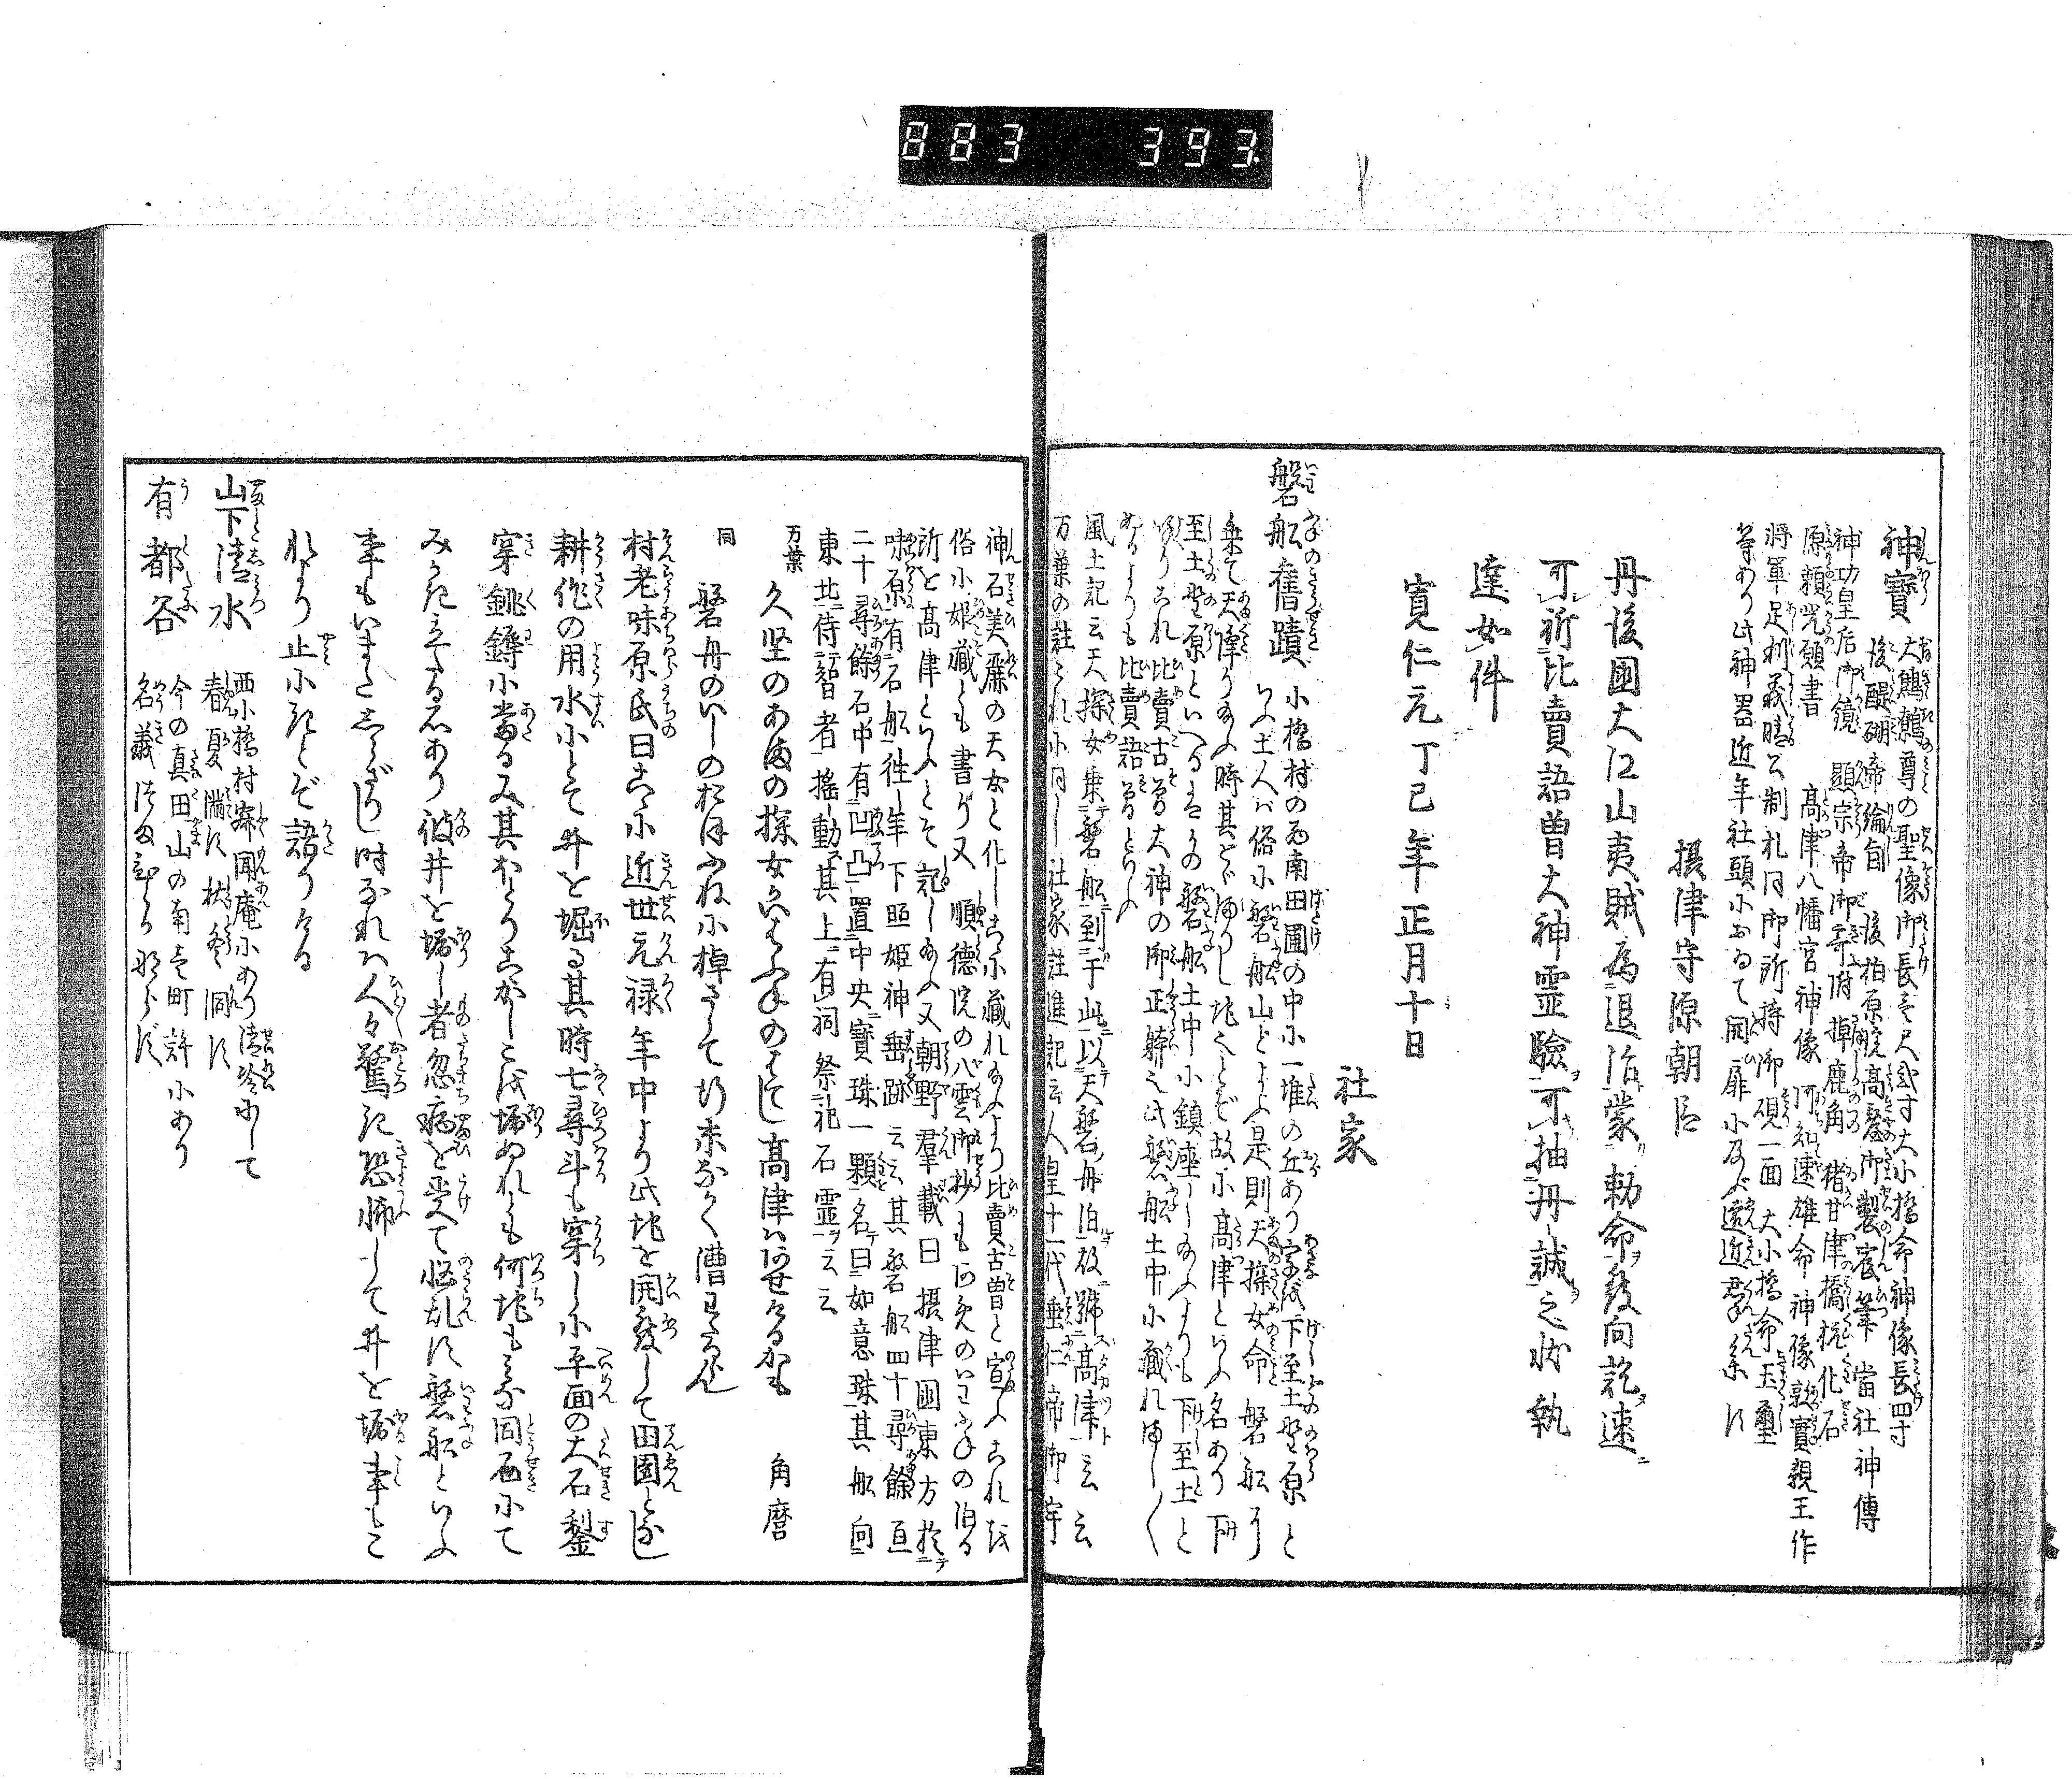 883 393
神寶 大鷦鷯尊の聖像御長壱尺弐寸大小橋命神像長四寸
後醍醐帝綸旨 後柏原院高臺御製宸筆 當社神傳
神功皇后御鏡 顕宗帝御寄附掉鹿角 猪甘津橋杭化石
原頼光願書 高津八幡宮神像 河知速雄命神像敦實親王作
将軍足利義晴公制札同御所持御硯一面 大小橋命玉璽
等あり此神器近年社頭におゐて開扉に及ぶ遠近君子参す
摂津守源朝臣
丹後國大江山夷賊為追治蒙勅命發向訖速
可祈比賣語曽大神霊驗可抽丹誠之状執
達如件
寛仁元丁巳年正月十日
社家
磐舩舊蹟 小橋村の西南田圃の中に一堆の丘あり字を下至土野原と
いふ土人は俗に磐舩山とよぶ是則天探女命磐舩に
乗て天降り給ふ時其とゞまりし地也とぞ故に高津といふ名あり下
至土野原といへるはその磐舩土中に鎮座し給ふよりも下至土と
いへりこれ比賣古曽大神の御正躰也此磐舩土中に蔵れまし〱
めるよりも比賣語曽といふ
風土記云天探女乗磐舩到于此以天磐舟泊故號高津云云
万葉の註これに同し社家註進記云人皇十一代垂仁帝御宇
神石美麗の天女と化しこゝに蔵れ給ふより比賣古曽と宣ふこれを
俗に姫蔵とも書り又 順徳院の八雲御抄にも
所を高津といふとそ記し給ふ又朝野羣載曰摂津國東方於
味原有石舩往年下照姫神垂跡云云其磐舩四十尋餘亘
二十尋餘石中有凹凸置中央寶珠一顆名曰如意珠其舩向
東北侍智者揺動其上有祠祭祀石霊云云
万葉 久堅のあまの探女がいはふねのはてし高津はあせにけるかも 角麿
同 磐舟のいしのたまふねに棹さして
村老味原氏曰こゝに近世元禄年中より此地を開發して田園となし
耕作の用水にとて井を堀る其時七尋斗も穿しに平面の大石鏨
穿銚鐏に當る又其ほとりこがしこを堀ぬれども何地もみな同石にて
みかけ立たる石あり彼井を堀し者忽病を受て悩乱す磐舩といふ
事もいまたしらざりし時なれは人々驚き恐怖して井を堀事もこ
れより止にきとぞ語りける
山下清水 西小橋村寒聞庵にあり清冷にして
春夏満す秋冬涸す
有都谷 今の真田山の南壱町許にあり
名義